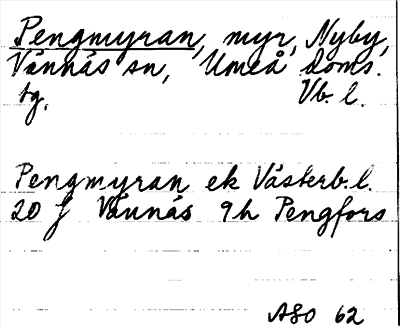 Pengmyran, myr, Nyby,
Vännäs sn, Umeå doms.
tg. Vb. l.
Pengmyran ek Västerb. l.
20 J Vännäs 9h Pengfors
ASO 62